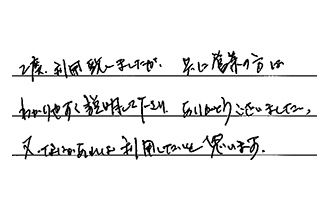 2度、利用致しましたが、共に営業の方は
わかり也すく説明して下さり、ありがとうございました。
又、なにかあれば利用したいと思います。